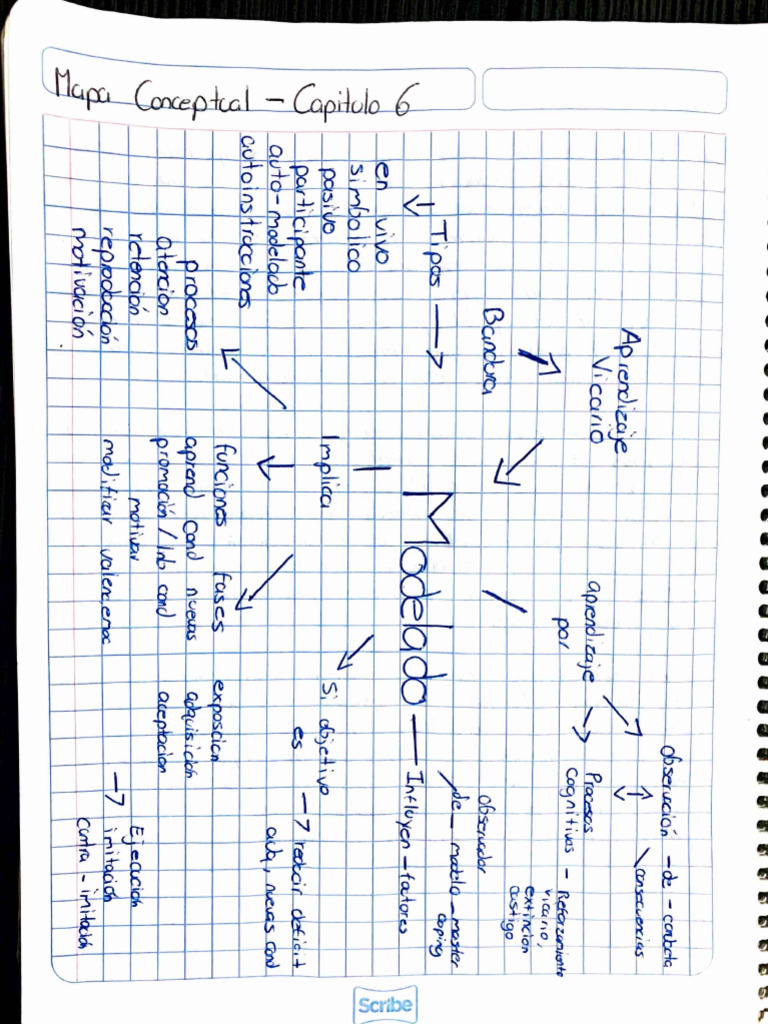 Mapa Conceptual - Capitulo 6
Aprendizaje
Vicario
Bandura
Tipos
en vivo
simbolico
pasivo
participante
auto-modelado
autoinstrucciones
Modelado
aprendizaje
por
observación - de - conducta
consecuencias
Procesos
cognitivos - Reforzamiento
vicario,
extincion
castigo
Influyen - factores
de - modelo - master
coping
observador
Implica
Si objetivo
es
reducir deficit
adq. nuevas cond
procesos
atencion
retención
reproducción
motivación
funciones
aprend cond nuevas
promoción / Inb cond
motivar
modificar valenc,emoc
fases
exposcion
adquisición
aceptacion
Ejecución
imitación
contra - imitación
Scribe